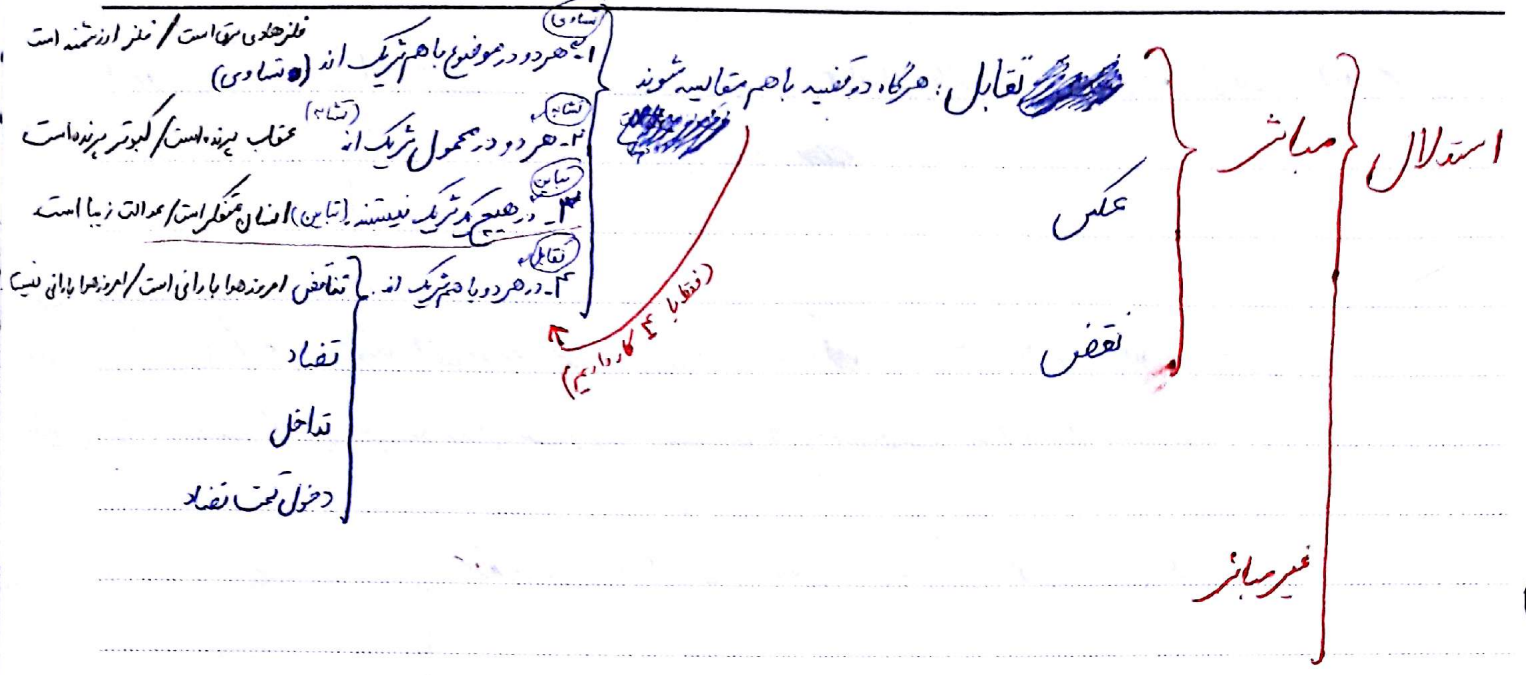 استدلال
مباشر
تقابل : هرگاه دو قضیه باهم مقایسه شوند
(تساوی)
۱- هر دو در موضوع باهم شریک اند (تساوی)
فلز هادی برق است / فلز ارزشمند است
تشابه
۲- هر دو در محمول شریک اند (تشابه) عقاب پرنده است / کبوتر پرنده است
تباین
۳- در هیچ یک شریک نیستند (تباین) انسان متفکر است / عدالت زیبا است
تقابل
۴- در هر دو با هم شریک اند.
تناقض امروز هوا بارانی است / امروز هوا بارانی نیست
تضاد
تداخل
دخول تحت تضاد
(فقط با ۴ کار داریم)
عکس
نقض
غیر مباشر